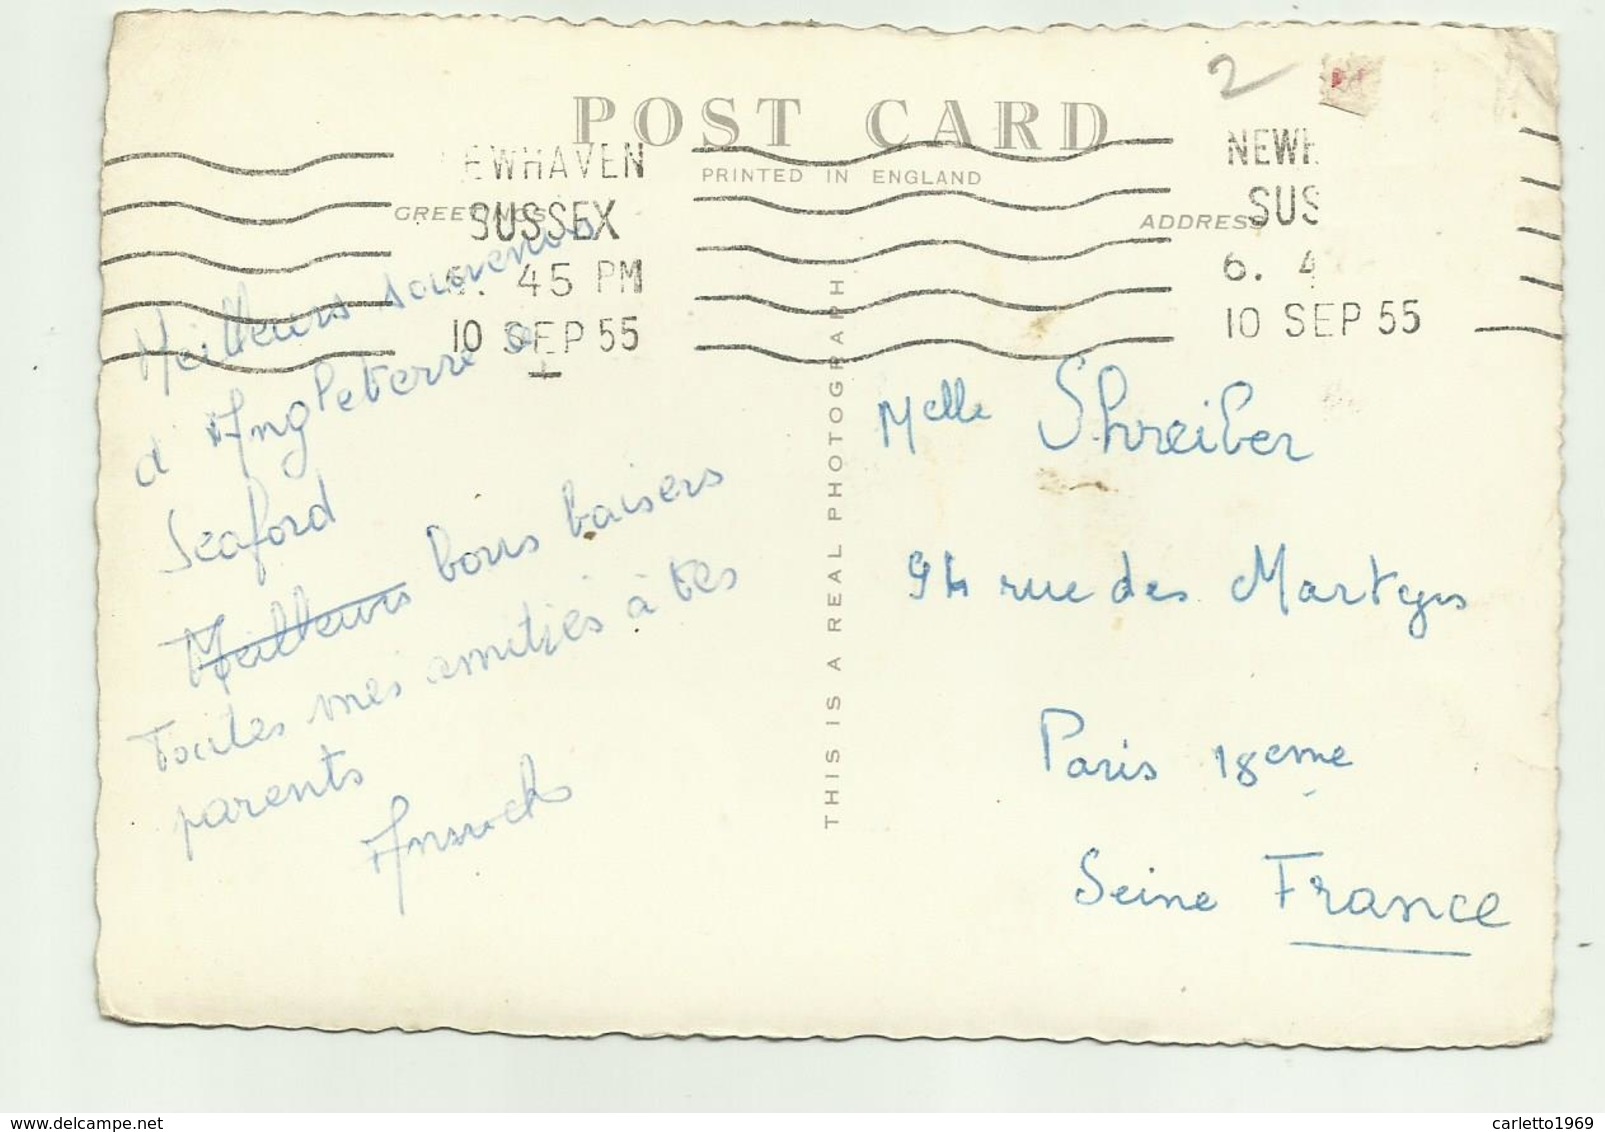 2
POST CARD
PRINTED IN ENGLAND
EWHAVEN
SUSSEX
6. 45 PM
10 SEP 55
NEWH
SUS
6. 4
10 SEP 55
GREETINGS
ADDRESS
Meilleurs souvenirs
d'Angleterre de
Seaford
Meilleurs bons baisers
Toutes mes amitiés à tes
parents
THIS IS A REAL PHOTOGRAPH
Melle Shreiber
94 rue des Martyrs
Paris 18eme
Seine France
delcampe.net
carletto1969